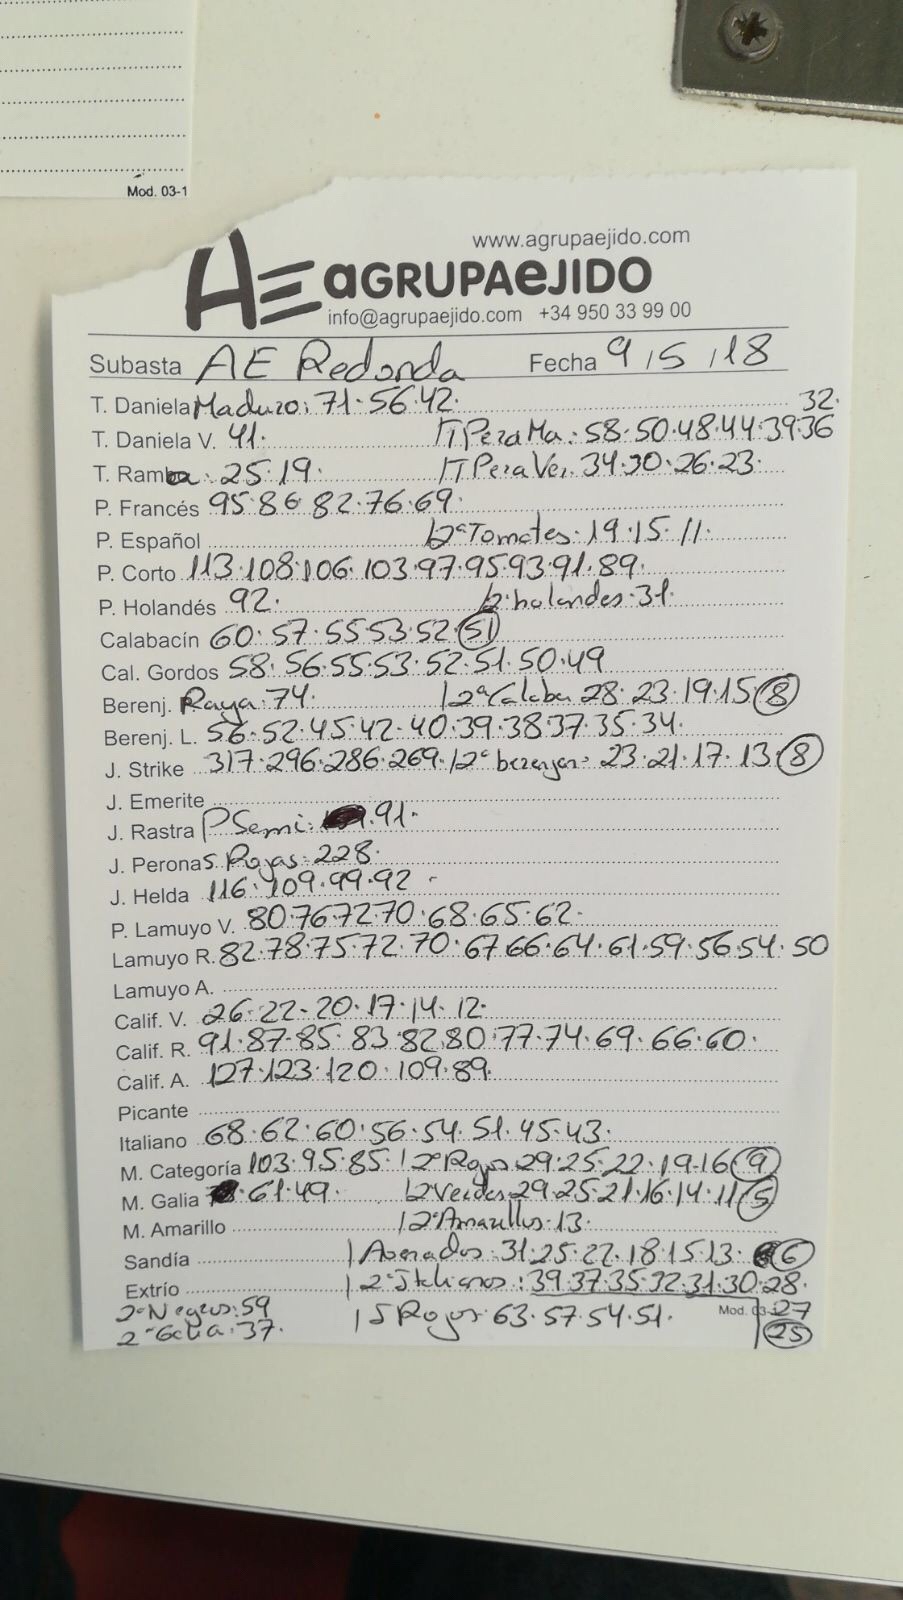 Mod. 03-1
www.agrupaejido.com
AE aGRUPAeJIDO
info@agrupaejido.com +34 950 33 99 00
Subasta AE Redonda Fecha 9/5/18
T. Daniela Maduzo: 71·56·42· 32·
T. Daniela V. 41· /T Peza Ma: 58·50·48·44·39·36
T. Ramba: 25·19· /T Peza Ve: 34·30·26·23·
P. Francés 95·86·82·76·69·
P. Español /2ª Tomates: 19·15·11·
P. Corto 113·108·106·103·97·95·93·91·89·
P. Holandés 92· /2ª holandes: 31·
Calabacín 60·57·55·53·52·51
Cal. Gordos 58·56·55·53·52·51·50·49
Berenj. Raya: 74· /2ª Calaba 28·23·19·15·8
Berenj. L. 56·52·45·42·40·39·38·37·35·34·
J. Strike 317·296·286·269·/2ª berenjen: 23·21·17·13·8
J. Emerite
J. Rastra P Semi: 91·
J. Peronas Rojas: 228·
J. Helda 116·109·99·92·
P. Lamuyo V. 80·76·72·70·68·65·62·
Lamuyo R. 82·78·75·72·70·67·66·64·61·59·56·54·50
Lamuyo A.
Calif. V. 26·22·20·17·14·12·
Calif. R. 91·87·85·83·82·80·77·74·69·66·60·
Calif. A. 127·123·120·109·89·
Picante
Italiano 68·62·60·56·54·51·45·43·
M. Categoría 103·95·85·/2ª Rojos 29·25·22·19·16·9
M. Galia 61·49· /2ª Verdes 29·25·21·16·14·11·5
M. Amarillo /2ª Amarillos·13·
Sandía / Asurados: 31·25·22·18·15·13·6
Extrío /2ª Italianos: 39·37·35·32·31·30·28·
2ª Negros: 59 Mod. 03- 27
2ª Galia: 37· /S Rojos: 63·57·54·51· 25